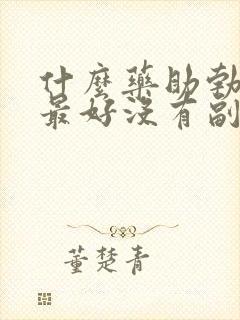 什麼藥助勃
最好沒有副
董楚青